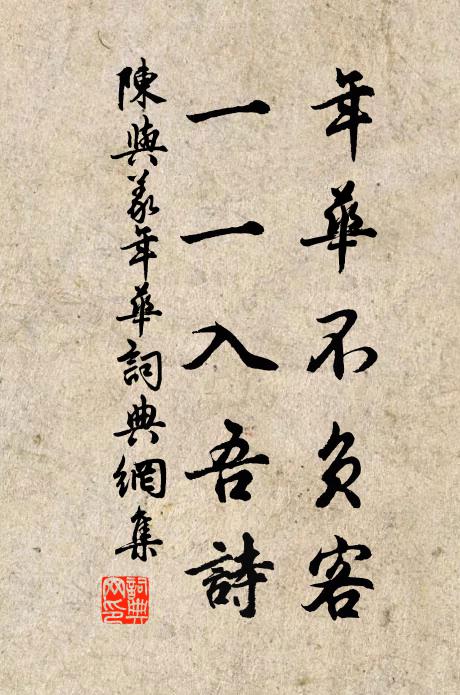 年華不負客
一一入吾詩
陳與義年華詞典網集
詞典網印